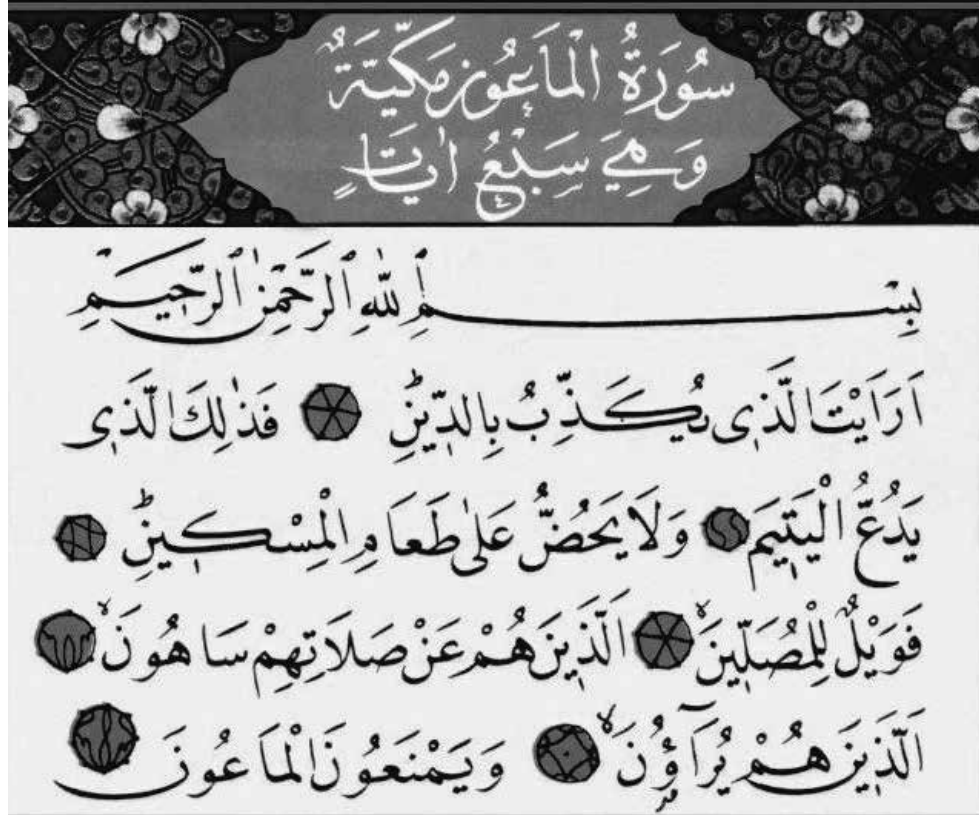 سُورَةُ الْمَاعُونِ مَكِّيَّةٌ
وَهِيَ سَبْعُ اٰيَاتٍ
بِسْمِ اللّٰهِ الرَّحْمٰنِ الرَّحِيمِ
اَرَاَيْتَ الَّذ۪ى يُكَذِّبُ بِالدّ۪ينِۜ فَذٰلِكَ الَّذ۪ى
يَدُعُّ الْيَت۪يمَ وَلَا يَحُضُّ عَلٰى طَعَامِ الْمِسْك۪ينِۜ
فَوَيْلٌ لِلْمُصَلّ۪ينَۙ اَلَّذ۪ينَ هُمْ عَنْ صَلَاتِهِمْ سَاهُونَۙ
اَلَّذ۪ينَ هُمْ يُرَٓاؤُ۫نَۙ وَيَمْنَعُونَ الْمَاعُونَ